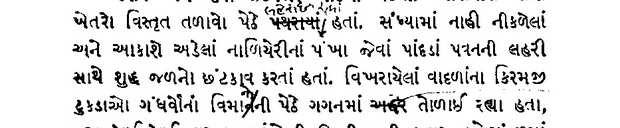 ખેતરો વિસ્તૃત તળાવો પેઠે પથરાયાં હતાં. સંધ્યામાં નાહી નીકળેલાં
અને આકાશે અડેલાં નાળિયેરીનાં પંખા જેવાં પાંદડાં પવનની લહરી
સાથે શુદ્ધ જળનો છંટકાવ કરતાં હતાં. વિખરાયેલાં વાદળાંના કિરમજી
ટુકડાઓ ગંધર્વોનાં વિમાનોની પેઠે ગગનમાં અદ્ધર તોળાઈ રહ્યા હતા,